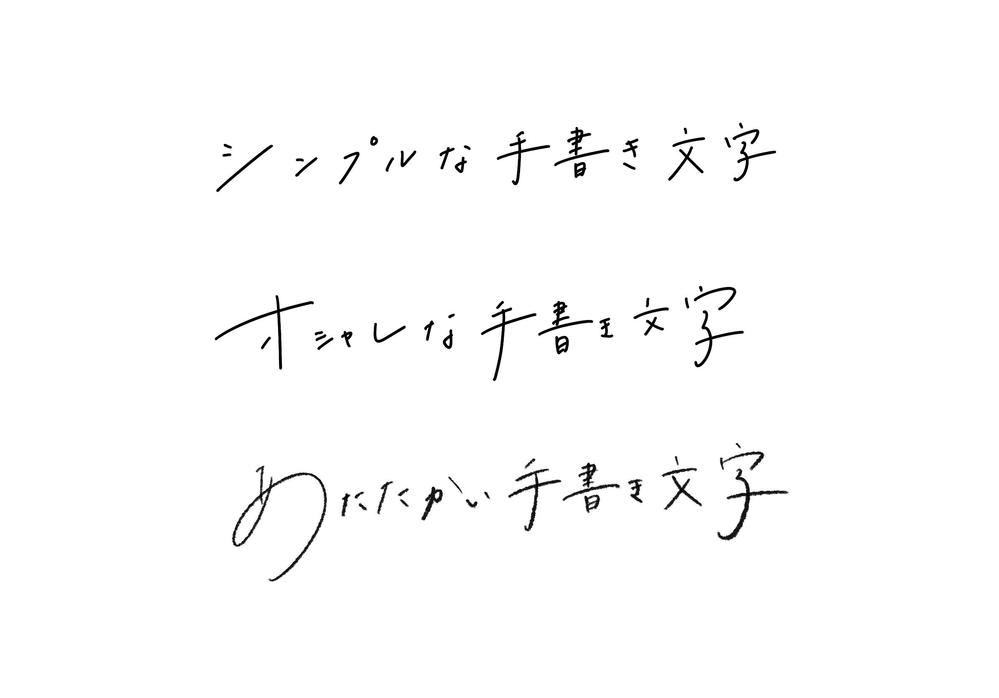 シンプルな手書き文字
オシャレな手書き文字
あたたかい手書き文字